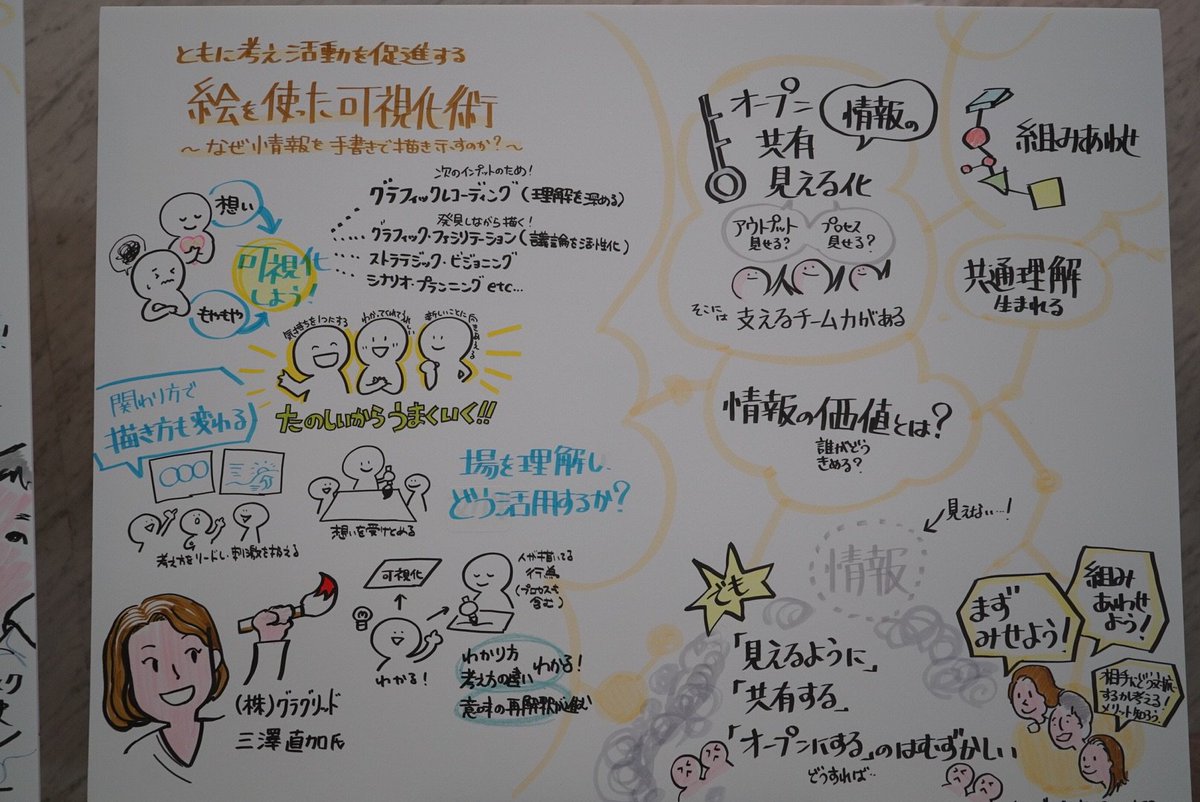 ともに考え活動を促進する
絵を使った可視化術
～なぜ情報を手書きで描き示すのか?～
想い
もやもや
可視化
しよう!
次のインプットのため!
グラフィックレコーディング(理解を深める)
発見しながら描く!
グラフィック・ファシリテーション(議論を活性化)
ストラテジック・ビジョニング
シナリオ・プランニング etc...
気持ちを1つにする
わかってくれてうれしい
新しいことに
たのしいからうまくいく!!
関わり方で
描き方も変わる
考え方をリードし、刺激を与える
想いを受けとめる
場を理解し、
どう活用するか?
(株)グラグリッド
三澤直加氏
可視化
わかる!
人が描いてる
行為
(プロセスも
含む)
わかり方
考え方の違い
わかる!
意味の再解釈が
オープン
共有
見える化
情報の
アウトプット
見せる?
プロセス
見せる?
そこには 支えるチーム力がある
組みあわせ
共通理解
生まれる
情報の価値とは?
誰がどう
きめる?
見えない…!
情報
でも
「見えるように」
「共有する」
「オープンにする」のはむずかしい
どうすれば…
まず
みせよう!
組み
あわせ
よう!
相手にどう
するか考える!
メリット知ろう!